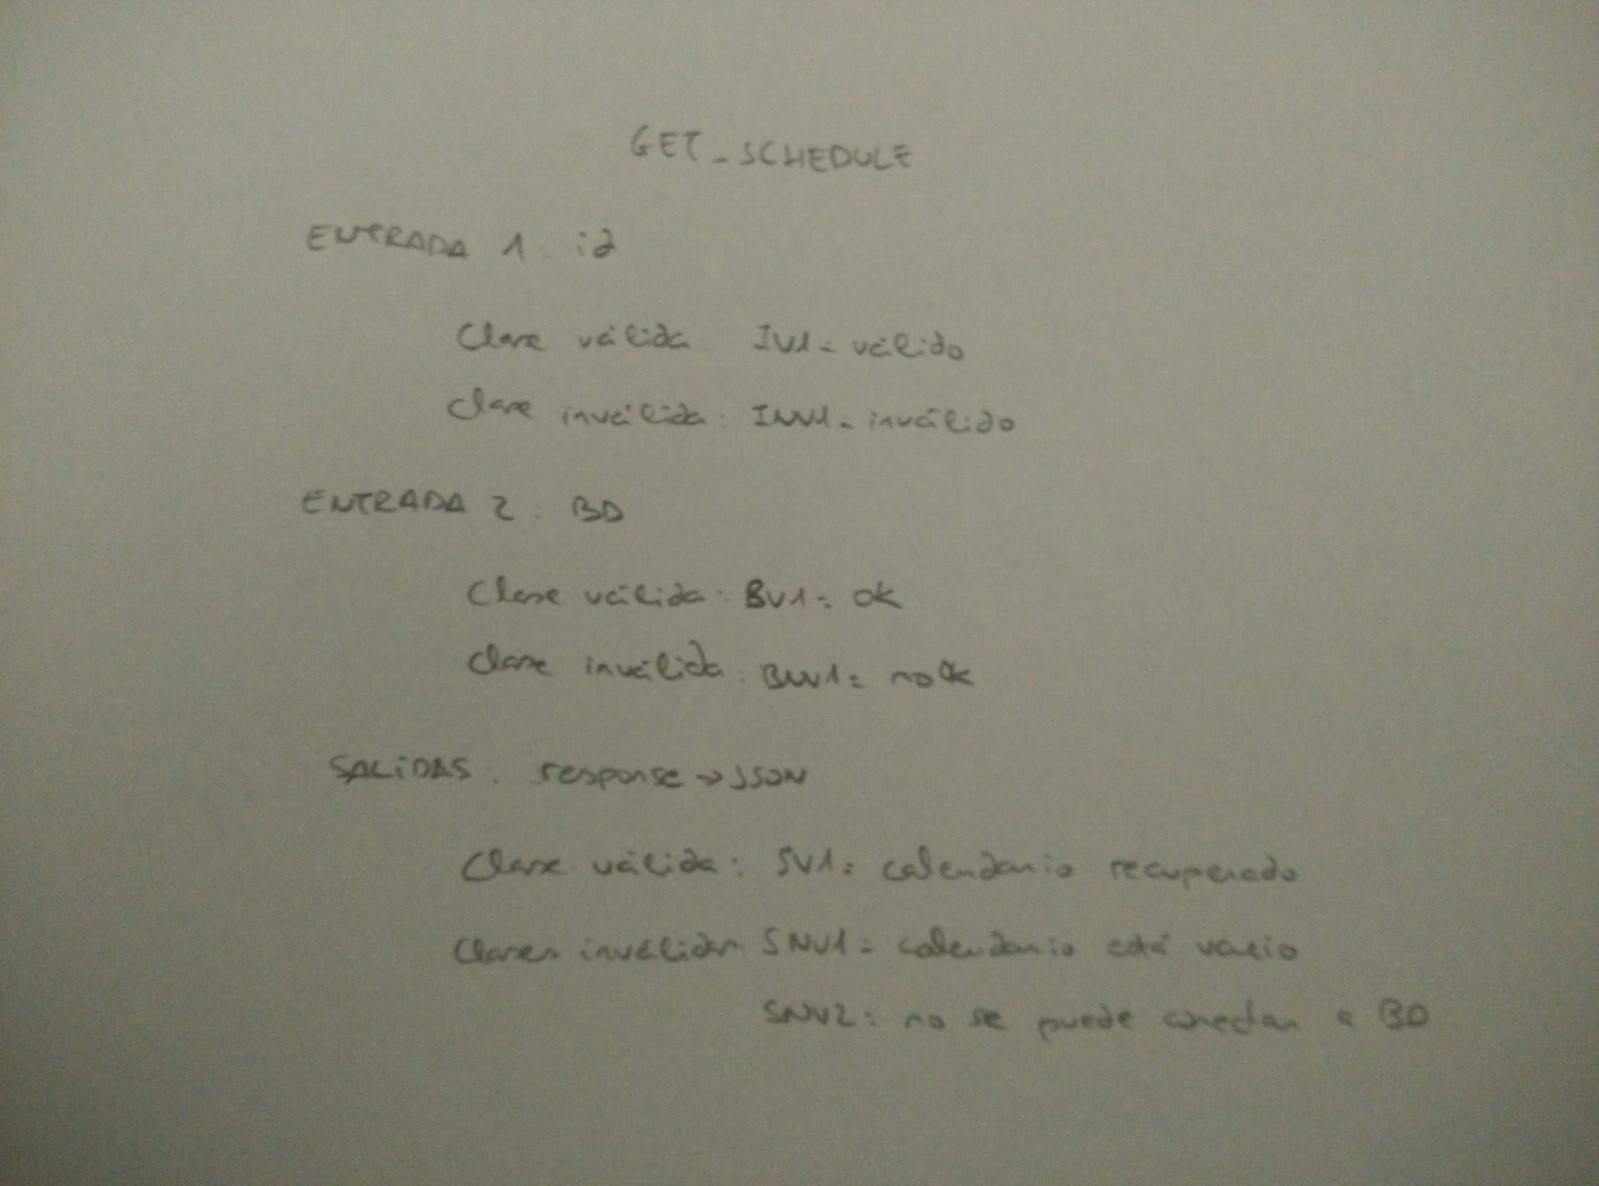 GET_SCHEDULE
ENTRADA 1: id
Clase válida: IV1= válido
Clase inválida: INV1= inválido
ENTRADA 2: BD
Clase válida: BV1= ok
Clase inválida: BNV1= no ok
SALIDAS: response → JSON
Clase válida: SV1= calendario recuperado
Clases inválidas: SNV1= calendario está vacio
SNV2= no se puede conectar a BD